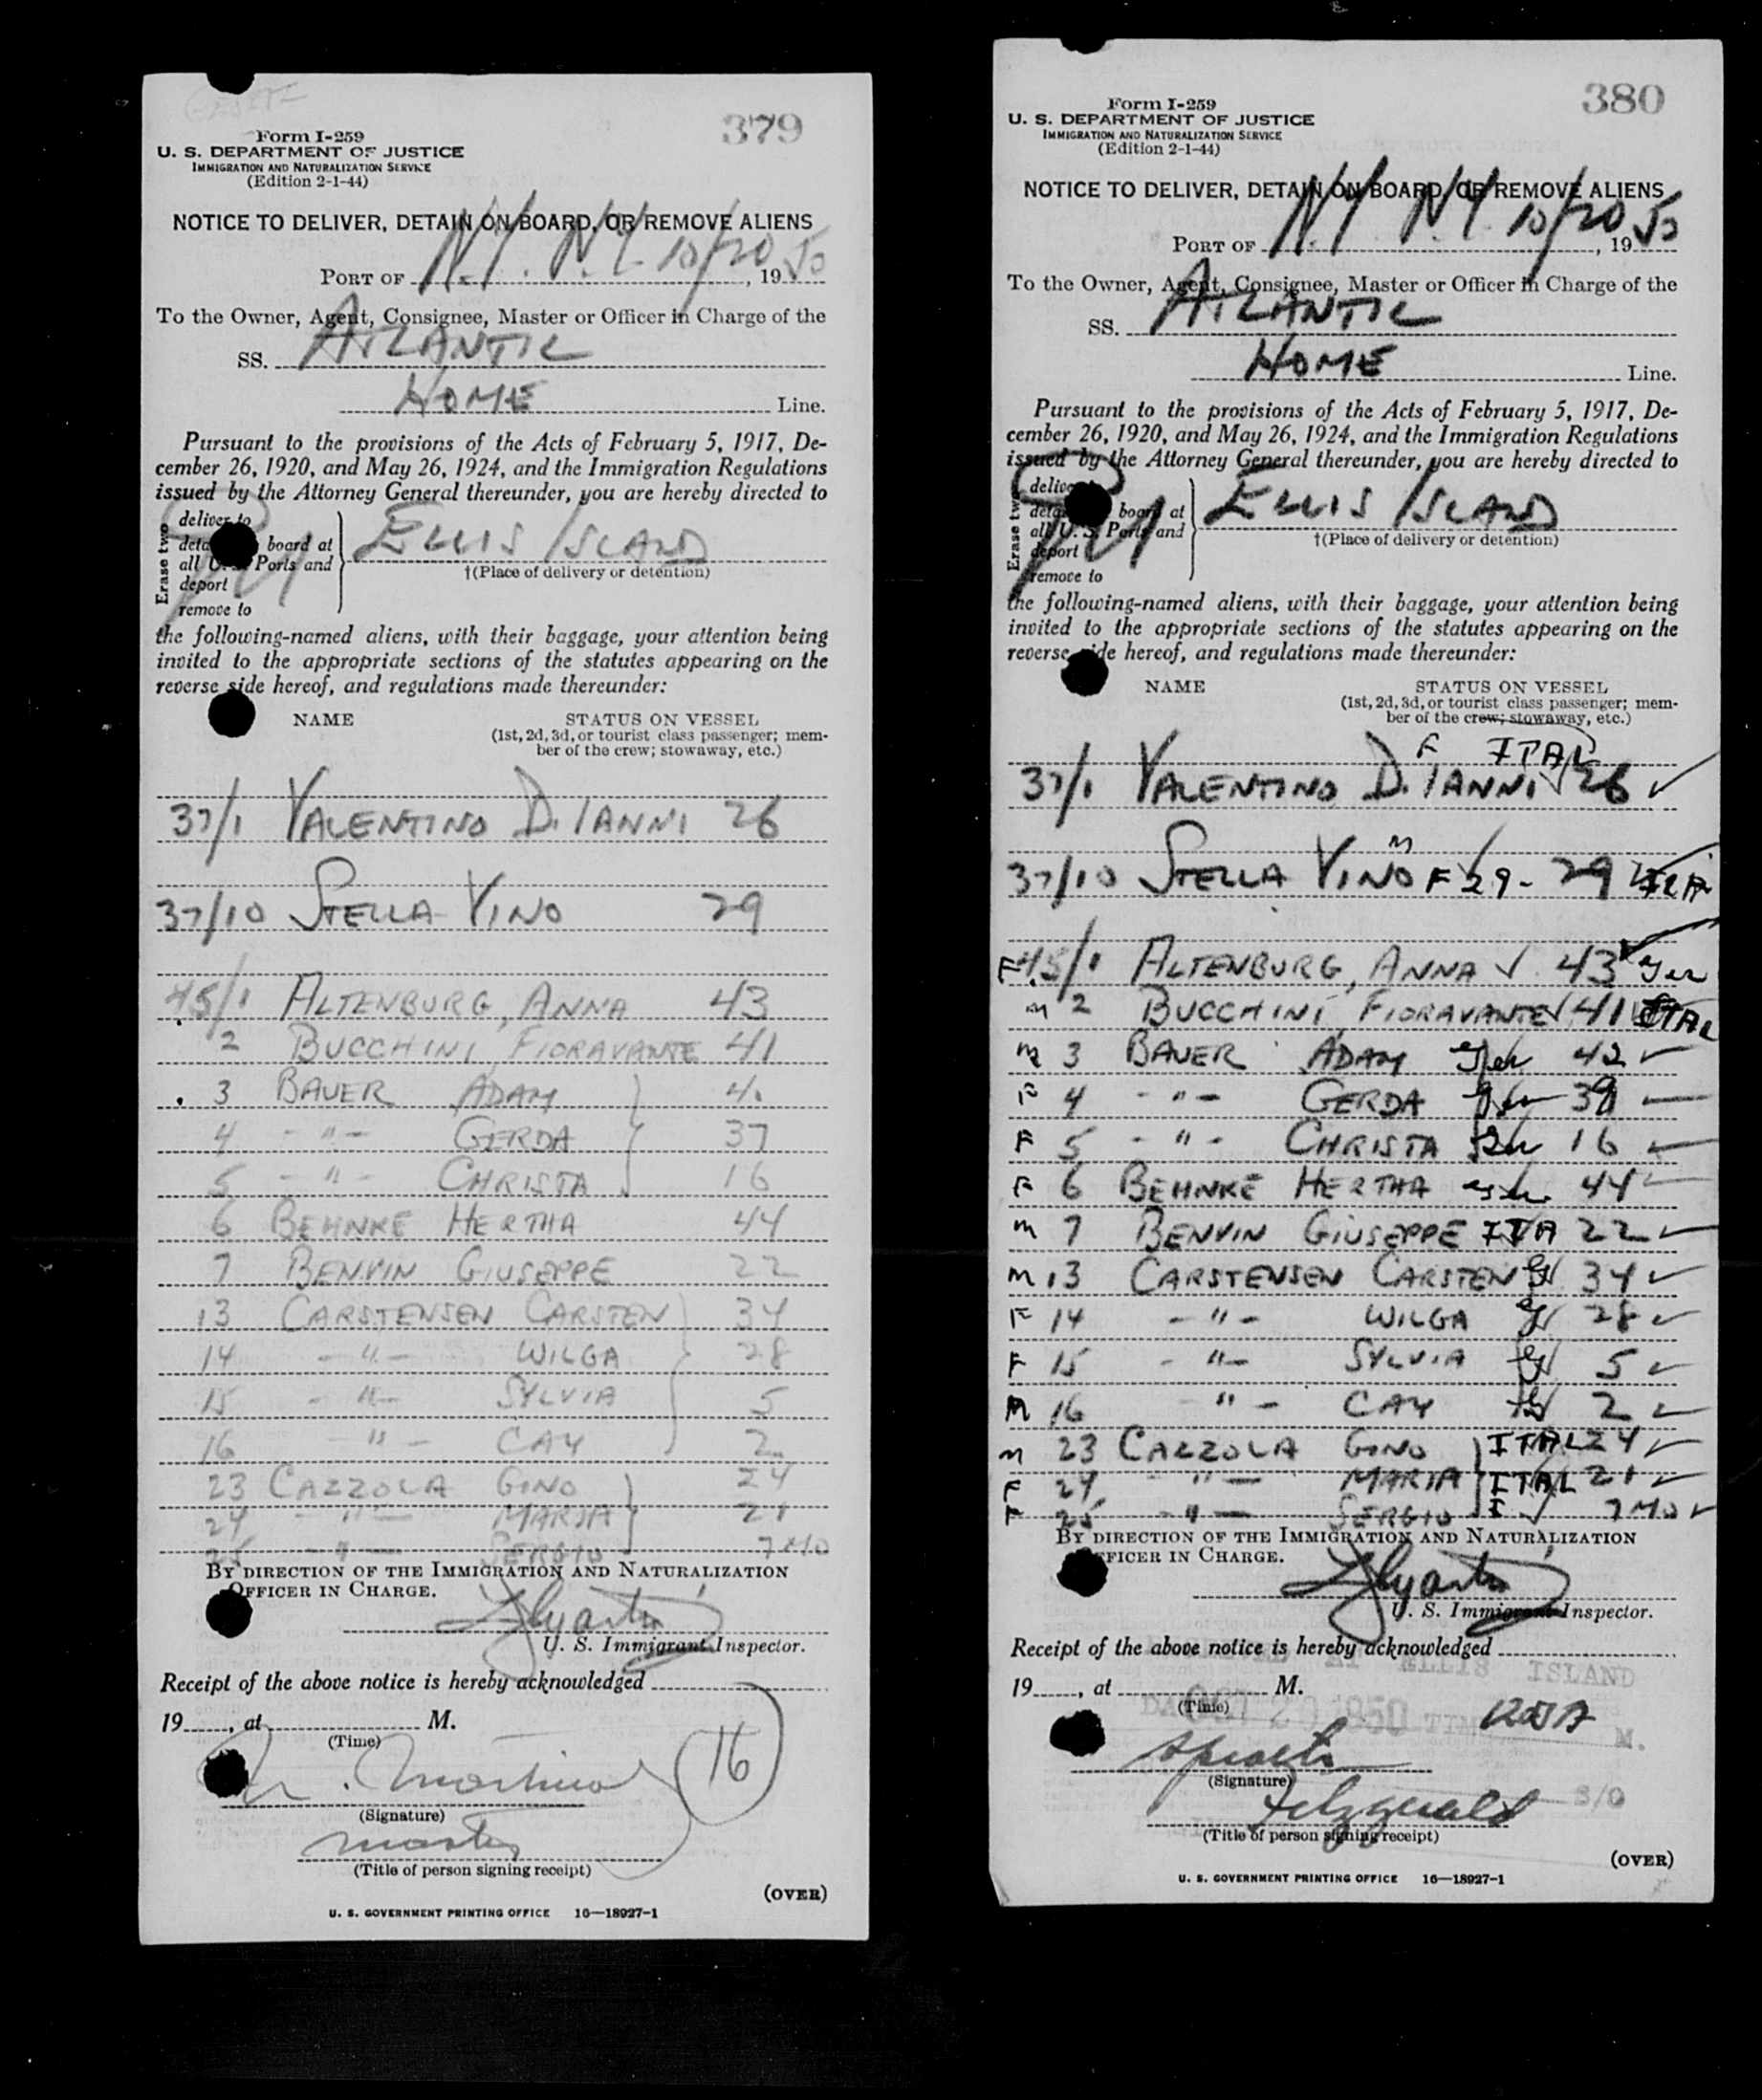 379
Form I-259
U. S. DEPARTMENT OF JUSTICE
IMMIGRATION AND NATURALIZATION SERVICE
(Edition 2-1-44)
NOTICE TO DELIVER, DETAIN ON BOARD, OR REMOVE ALIENS
PORT OF N.Y. N.Y. 10/20, 1950
To the Owner, Agent, Consignee, Master or Officer in Charge of the
SS. ATLANTIC
HOME Line.
Pursuant to the provisions of the Acts of February 5, 1917, De-
cember 26, 1920, and May 26, 1924, and the Immigration Regulations
issued by the Attorney General thereunder, you are hereby directed to
Erase two
deliver to
board at
all U. S. Ports and
deport
remove to
ELLIS ISLAND
†(Place of delivery or detention)
the following-named aliens, with their baggage, your attention being
invited to the appropriate sections of the statutes appearing on the
reverse side hereof, and regulations made thereunder:
NAME STATUS ON VESSEL
(1st, 2d, 3d, or tourist class passenger; mem-
ber of the crew; stowaway, etc.)
37/1 VALENTINO D. IANNI 26
37/10 STELLA VINO 29
45/1 ALTENBURG, ANNA 43
2 BUCCHINI, FIORAVANTE 41
3 BAUER ADAM
4 - " - GERDA 37
5 - " - CHRISTA 16
6 BEHNKE HERTHA 44
7 BENVIN GIUSEPPE 22
13 CARSTENSEN CARSTEN 34
14 - " - WILGA 28
15 - " - SYLVIA 5
16 - " - CAY 2
23 CAZZOLA GINO 24
24 - " - MARIA 21
25 - " - SERGIO 7 MO
BY DIRECTION OF THE IMMIGRATION AND NATURALIZATION
OFFICER IN CHARGE.
U. S. Immigrant Inspector.
Receipt of the above notice is hereby acknowledged
19, at M.
(Time)
16
(Signature)
master
(Title of person signing receipt)
(OVER)
U. S. GOVERNMENT PRINTING OFFICE 16—18927-1
380
Form I-259
U. S. DEPARTMENT OF JUSTICE
IMMIGRATION AND NATURALIZATION SERVICE
(Edition 2-1-44)
NOTICE TO DELIVER, DETAIN ON BOARD, OR REMOVE ALIENS
PORT OF N.Y. N.Y. 10/20, 1950
To the Owner, Agent, Consignee, Master or Officer in Charge of the
SS. ATLANTIC
HOME Line.
Pursuant to the provisions of the Acts of February 5, 1917, De-
cember 26, 1920, and May 26, 1924, and the Immigration Regulations
issued by the Attorney General thereunder, you are hereby directed to
Erase two
board at
all U. S. Ports and
deport
remove to
ELLIS ISLAND
†(Place of delivery or detention)
the following-named aliens, with their baggage, your attention being
invited to the appropriate sections of the statutes appearing on the
reverse side hereof, and regulations made thereunder:
NAME STATUS ON VESSEL
(1st, 2d, 3d, or tourist class passenger; mem-
ber of the crew; stowaway, etc.)
F ITAL
37/1 VALENTINO D. IANNI 26 ✓
M
37/10 STELLA VINO F 29 - 29
F 45/1 ALTENBURG, ANNA ✓ 43 Ger
M 2 BUCCHINI, FIORAVANTE 41 ITAL
M 3 BAUER ADAM Ger 42 ✓
F 4 - " - GERDA Ger 39
F 5 - " - CHRISTA Ger 16 ✓
F 6 BEHNKE HERTHA Ger 44 ✓
M 7 BENVIN GIUSEPPE ITA 22 ✓
M 13 CARSTENSEN CARSTEN 34 ✓
F 14 - " - WILGA 28 ✓
F 15 - " - SYLVIA 5 ✓
M 16 " - CAY 2 ✓
M 23 CAZZOLA GINO ITAL 24 ✓
F 24 " - MARIA ITAL 21 ✓
F 25 - " - SERGIO I ✓ 7 MO ✓
BY DIRECTION OF THE IMMIGRATION AND NATURALIZATION
OFFICER IN CHARGE.
U. S. Immigrant Inspector.
Receipt of the above notice is hereby acknowledged
AT ELLIS ISLAND
19, at M.
(Time)
OCT 20 1950 TIME M.
(Signature)
Fitzgerald
(Title of person signing receipt)
(OVER)
U. S. GOVERNMENT PRINTING OFFICE 16—18927-1